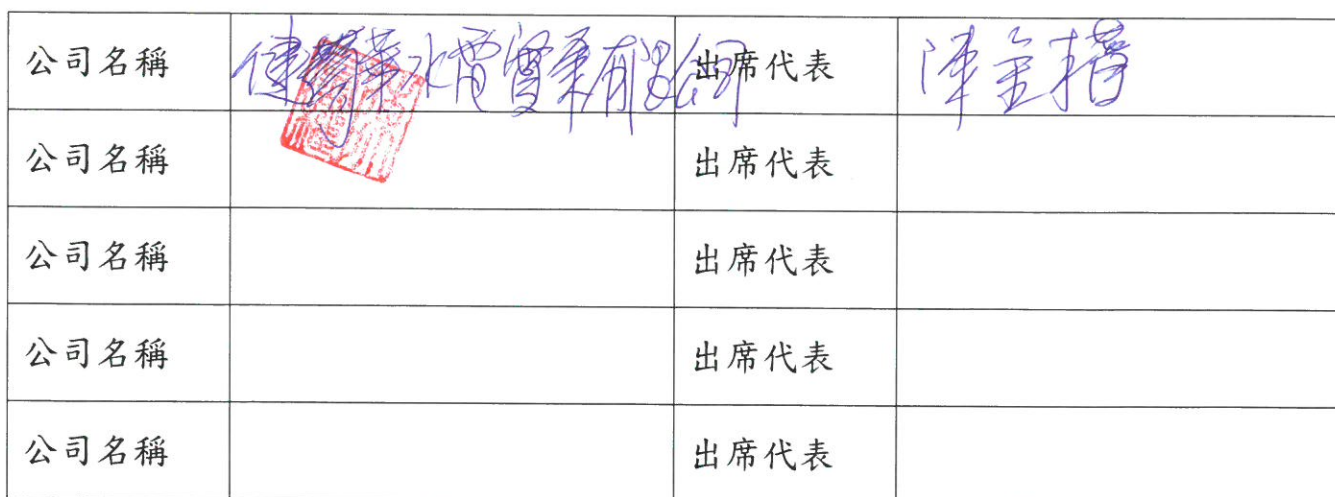 公司名稱 健華水電實業有限公司 出席代表 陳金
公司名稱 出席代表
公司名稱 出席代表
公司名稱 出席代表
公司名稱 出席代表